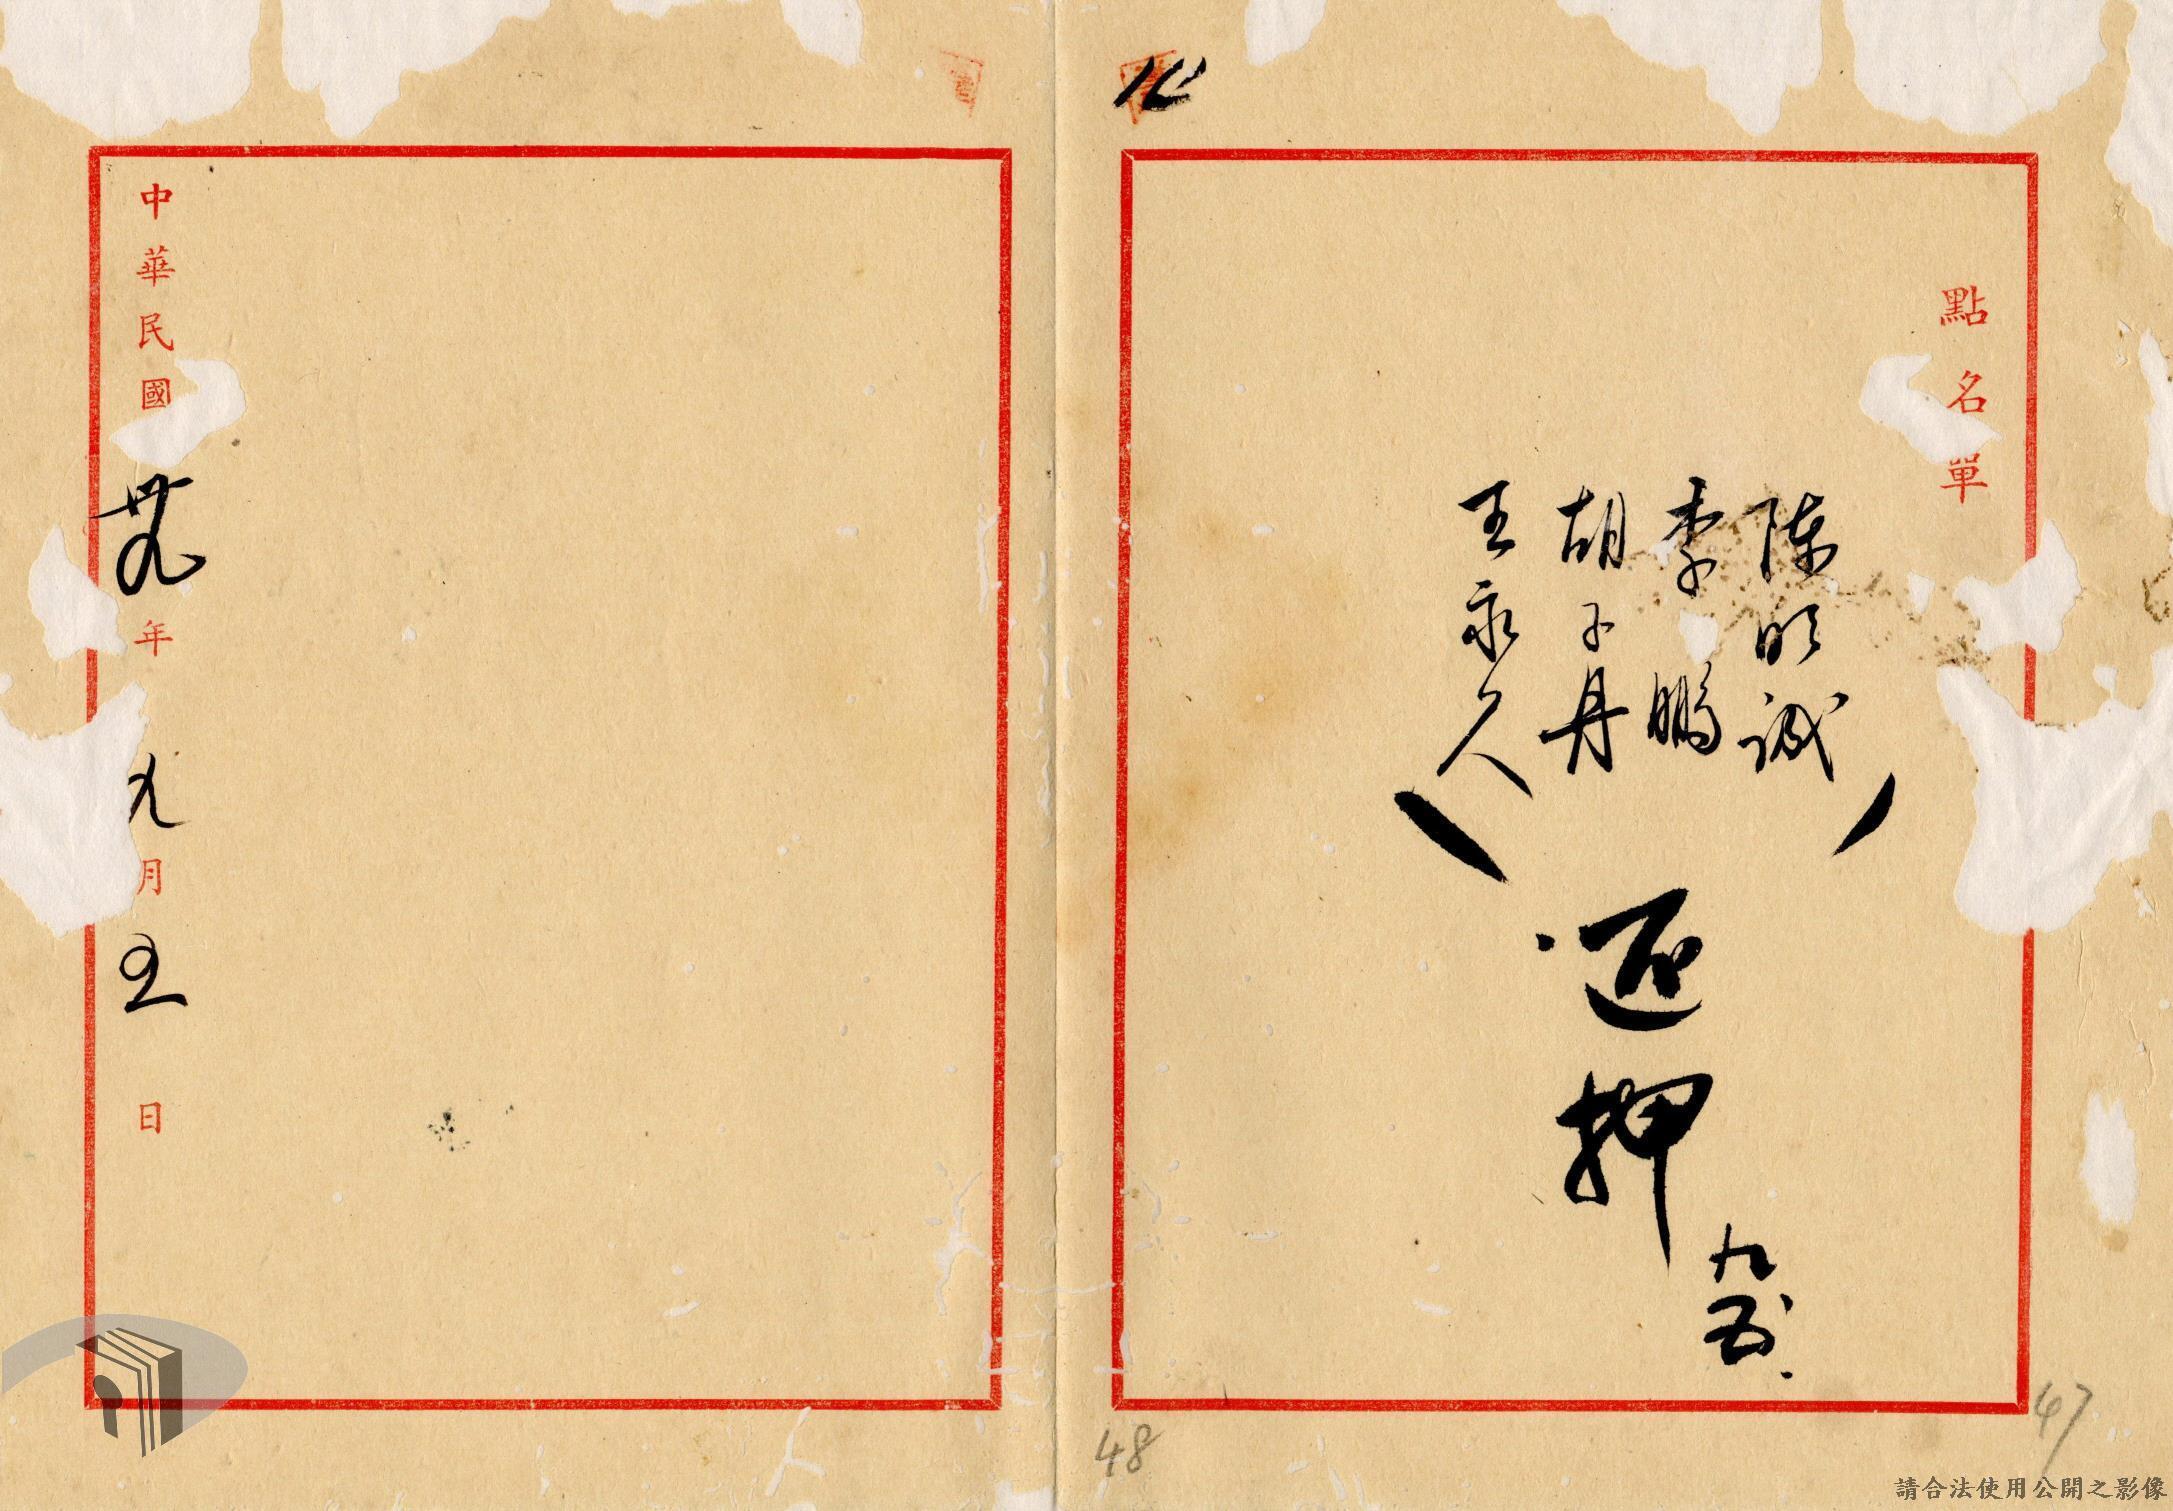 點名單
陳明誠
李鵬
胡子丹
王永久
還押
九五
中華民國卅九年九月五日
48
47
請合法使用公開之影像